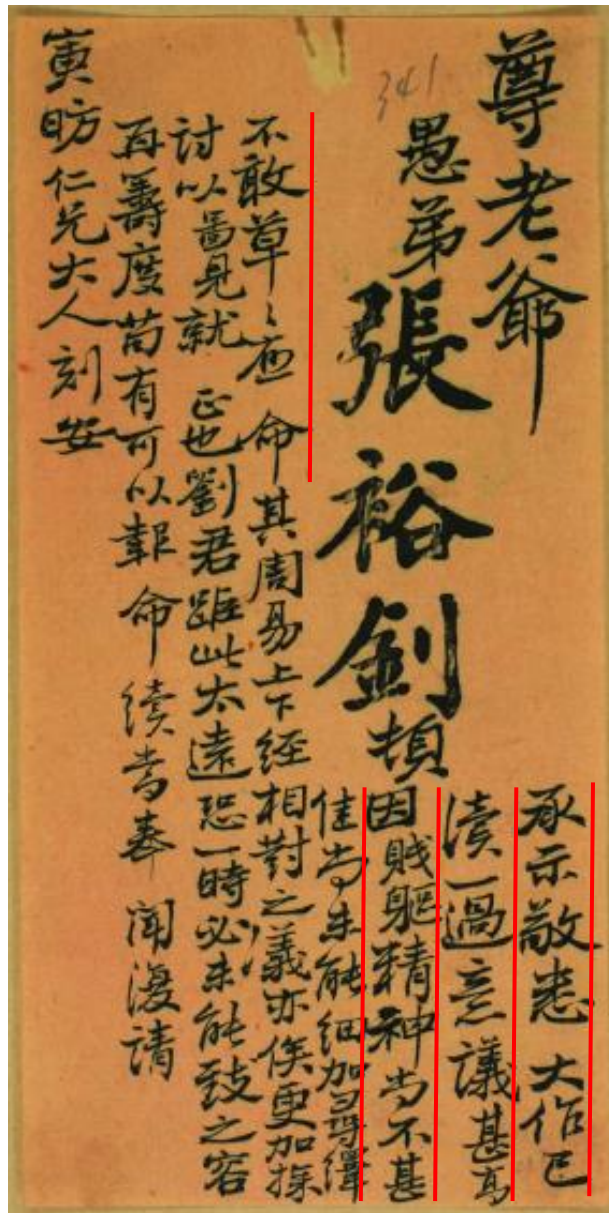 341
尊老爺
愚弟張裕釗頓
承示敬悉 大作已
讀一過意議甚高
因賤軀精神尚不甚
佳尚未能細加尋繹
不敢草〻應 命其周易上下經相對之義亦俟更加探
討以蒭見就 正也劉君距此太遠恐一時必未能致之容
再籌度苟有可以報 命續當奉 聞復請
寅昉仁兄大人刻安